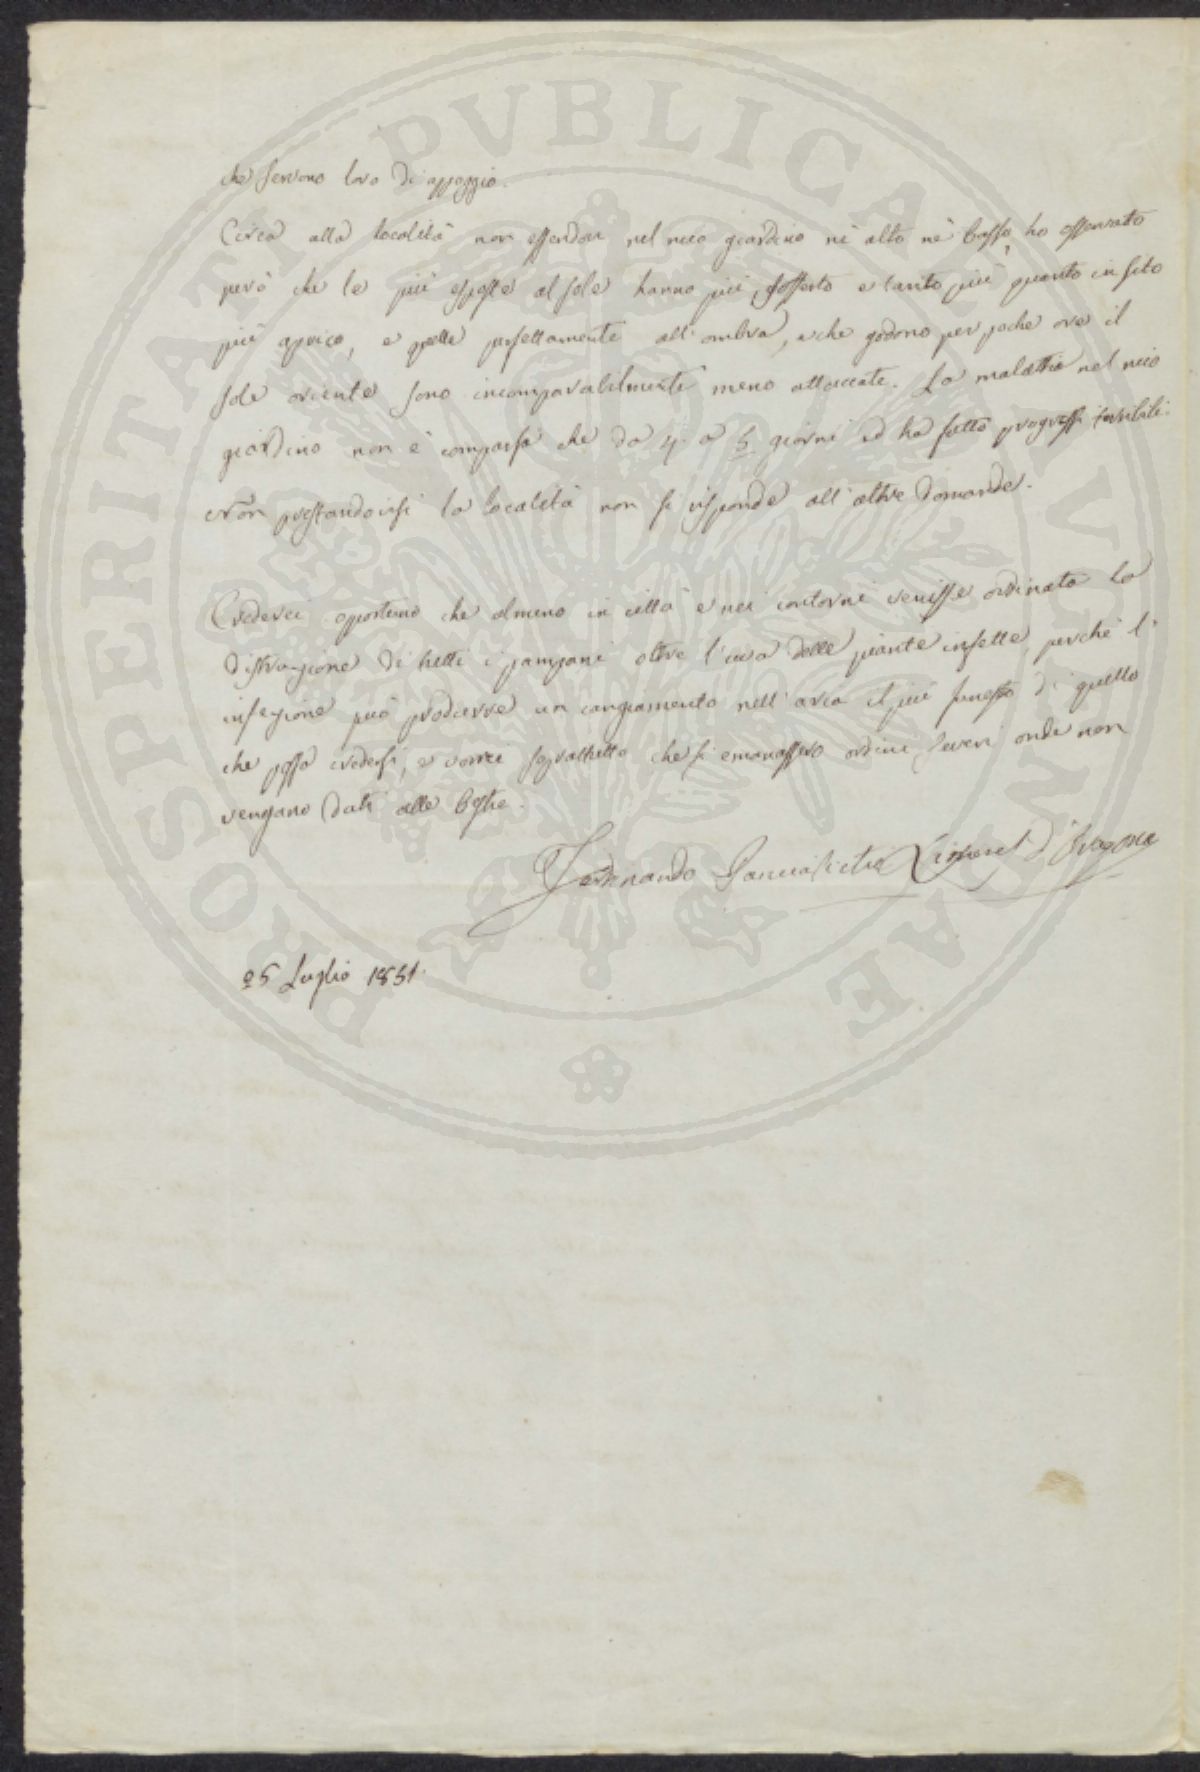 che servono loro di appoggio.
Circa alla località non essendovi nel mio giardino nè alto nè basso, ho osservato
però che le più esposte al sole hanno più sofferto e tanto più quanto in sito
più aprico, e quelle perfettamente all'ombra, e che godono per poche ore il
sole oriente sono incomparabilmente meno attaccate. La malattia nel mio
giardino non è comparsa che da 4 a 5 giorni ed ha fatto progressi terribili.
Non prestandovisi la località non si risponde all'altre domande.
Crederei oportuno che almeno in città e nei contorni venisse ordinata la
distruzione di tutti i pampani oltre l'uva delle piante infette, perchè l'
infezione può produrre un cangiamento nell'aria il più funesto di quello
che possa credersi, e vorrei sopratutto che si emanassero ordini severi onde non
vengano dati alle bestie.
Ferdinando Panciatichi Ximenes d'Aragona
25 Luglio 1851.
PROSPERITATI PUBLICAE AUGENDAE